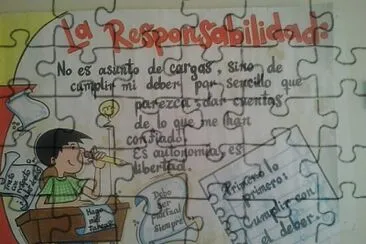 La Responsabilidad:
No es asunto de cargas, sino de
cumplir mi deber por sencillo que
parezca; dar cuentas
de lo que me han
confiado.
Es autonomía, es
libertad.
Primero lo
primero:
Cumplir con
el deber.
Debo
ser
puntual
siempre
Hago
mis
Tareas